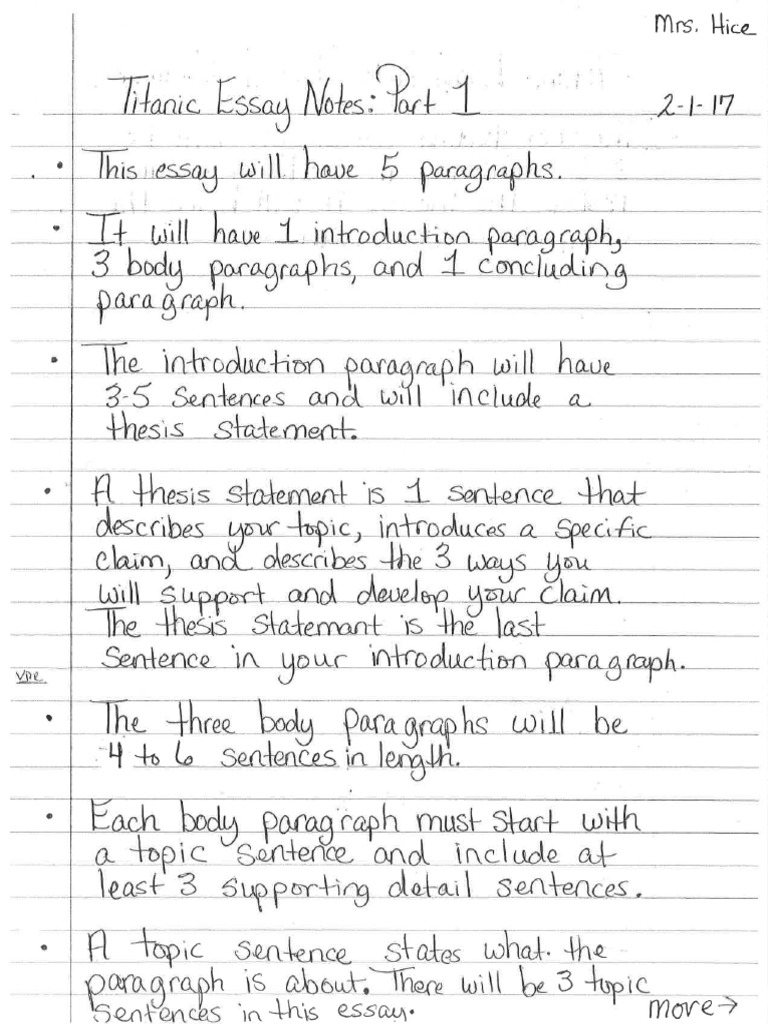 Mrs. Hice
Titanic Essay Notes: Part 1
2-1-17
• This essay will have 5 paragraphs.
• It will have 1 introduction paragraph,
3 body paragraphs, and 1 concluding
paragraph.
• The introduction paragraph will have
3-5 sentences and will include a
thesis statement.
• A thesis statement is 1 sentence that
describes your topic, introduces a specific
claim, and describes the 3 ways you
will support and develop your claim.
The thesis statemant is the last
sentence in your introduction paragraph.
• The three body paragraphs will be
4 to 6 sentences in length.
• Each body paragraph must start with
a topic sentence and include at
least 3 supporting detail sentences.
• A topic sentence states what the
paragraph is about. There will be 3 topic
sentences in this essay.
more →